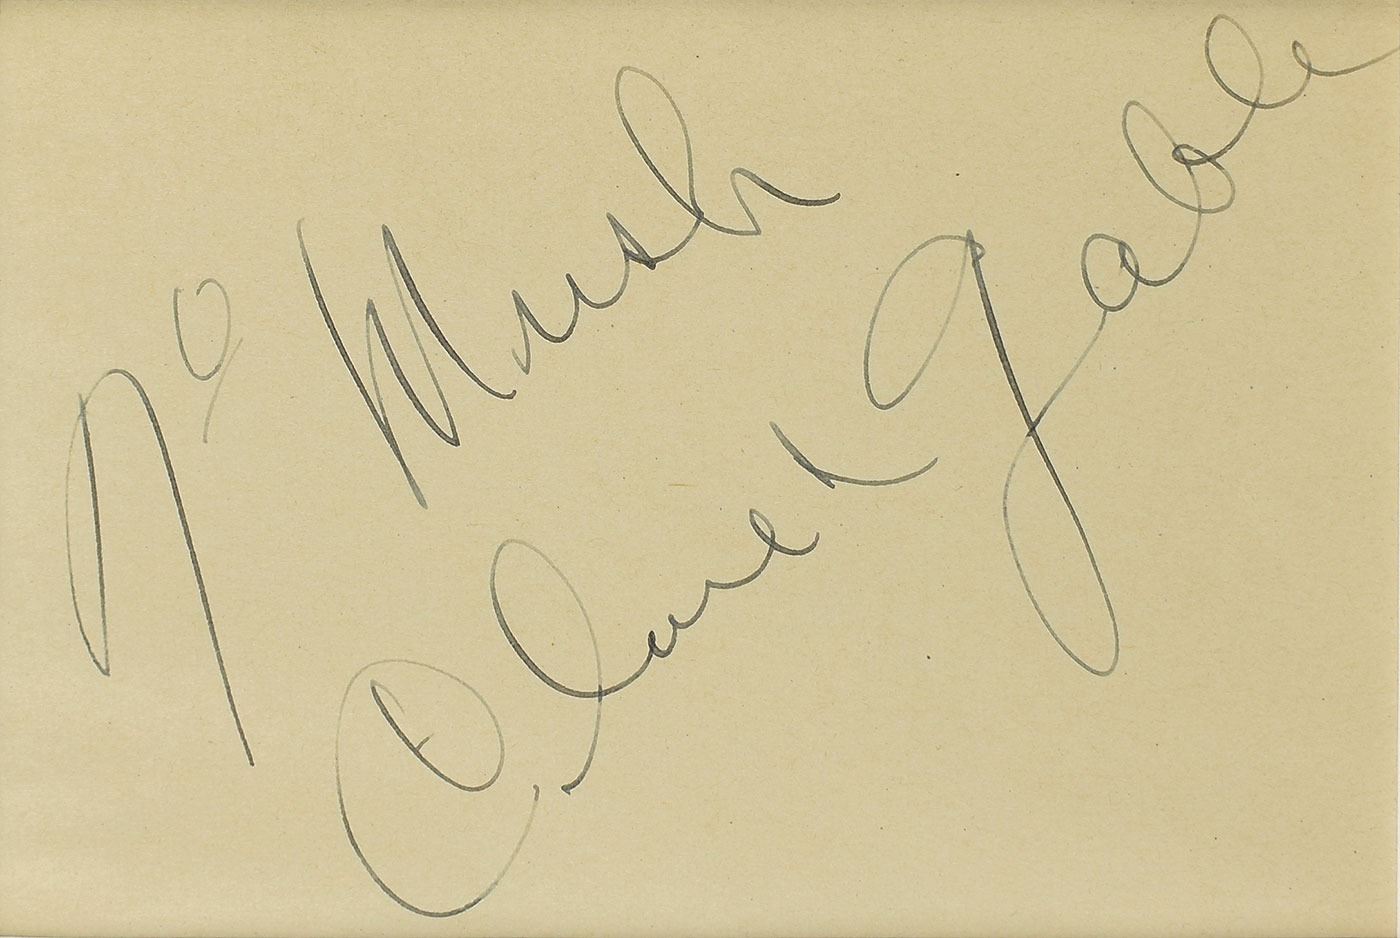 To Mush
Clark Gable